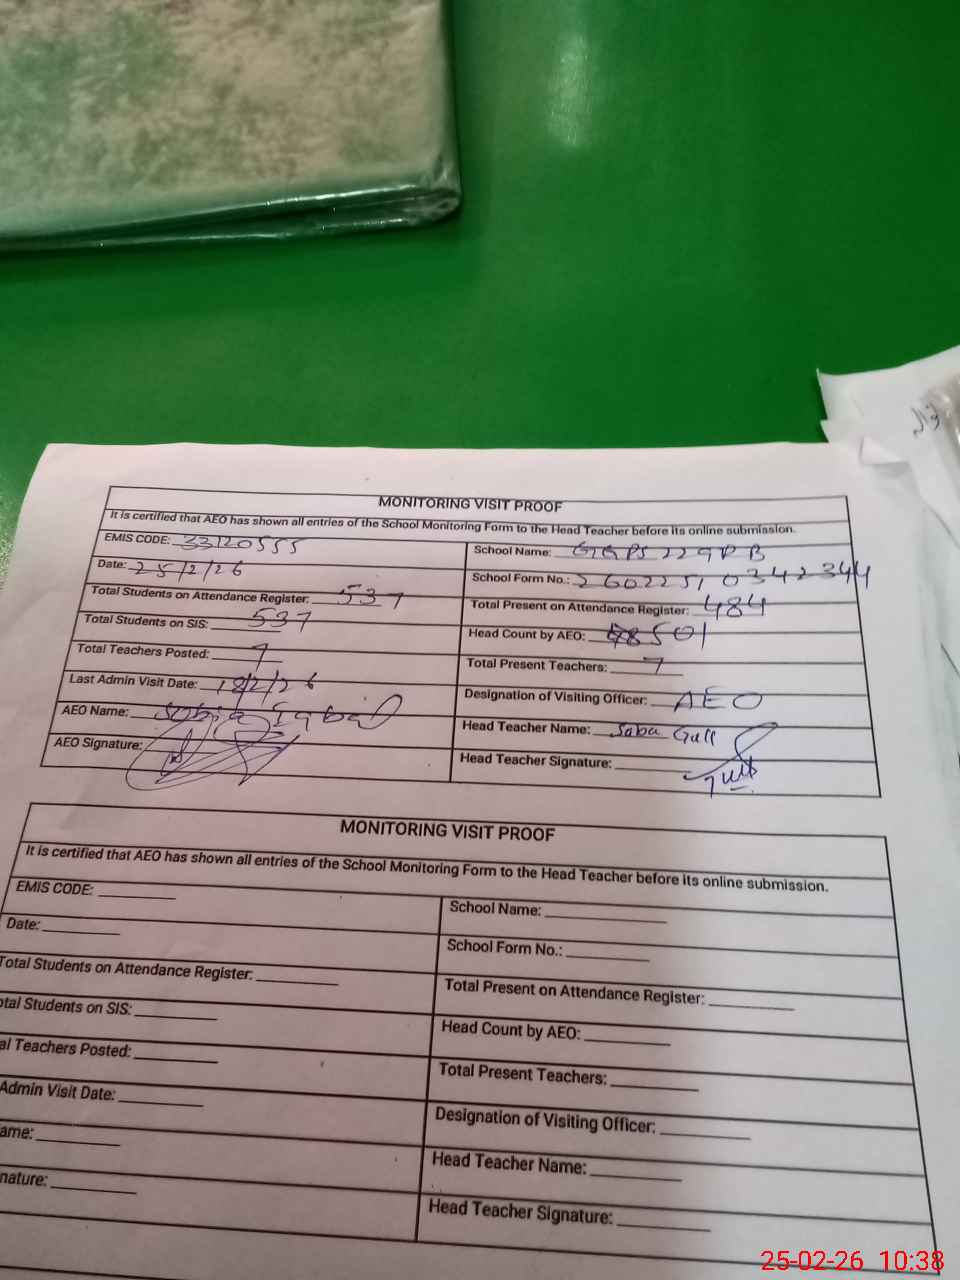 MONITORING VISIT PROOF
It is certified that AEO has shown all entries of the School Monitoring Form to the Head Teacher before its online submission.
EMIS CODE: 33120555 School Name: GGPS 229 RB
Date: 25/2/26 School Form No.: 2602251 0342344
Total Students on Attendance Register: 537 Total Present on Attendance Register: 484
Total Students on SIS: 537 Head Count by AEO: 501
Total Teachers Posted: 7 Total Present Teachers: 7
Last Admin Visit Date: 18/2/26 Designation of Visiting Officer: AEO
AEO Name: Sobia Iqbal Head Teacher Name: Saba Gull
AEO Signature: Head Teacher Signature:
MONITORING VISIT PROOF
It is certified that AEO has shown all entries of the School Monitoring Form to the Head Teacher before its online submission.
EMIS CODE: School Name:
Date: School Form No.:
Total Students on Attendance Register: Total Present on Attendance Register:
otal Students on SIS: Head Count by AEO:
al Teachers Posted: Total Present Teachers:
Admin Visit Date: Designation of Visiting Officer:
ame: Head Teacher Name:
nature: Head Teacher Signature:
25-02-26 10:38